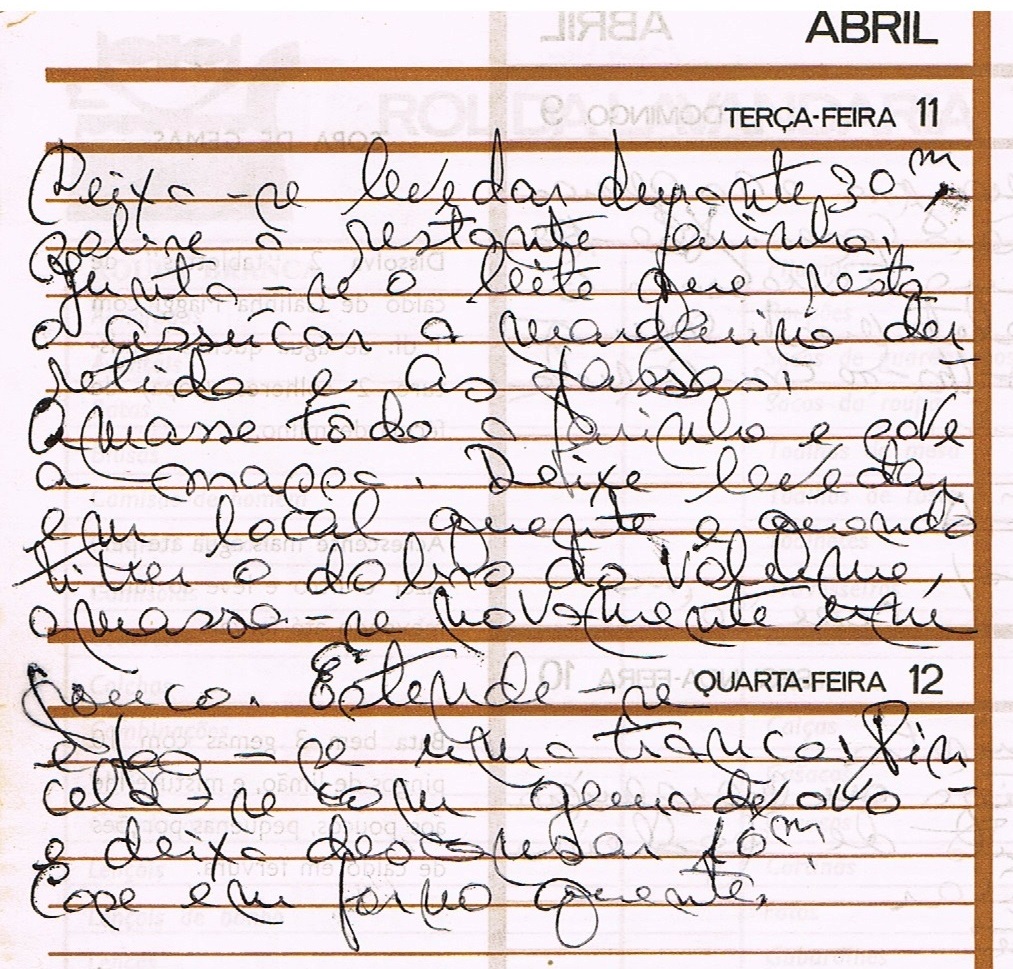 ABRIL
TERÇA-FEIRA 11
Deixa-se levedar durante 30 m
a restante farinha,
Junta-se o leite que resta
o assúcar a margarina der
retida e as passas.
Amasse toda a farinha e sove
a massa. Deixe levedar
em local quente e quando
tiver o dobro do volume,
amassa-se novamente um
pouco. Estende-se
QUARTA-FEIRA 12
e faz-se uma trança. Pin
cela-se com gema de ovo -
e deixa descansar 10 m
Coze em forno quente.